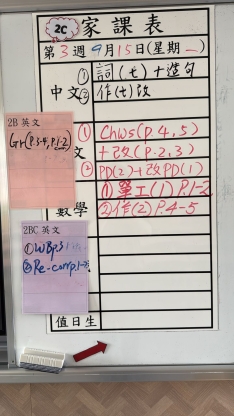 2C 家課表
第3週9月15日(星期一)
中文 ①詞(七)+造句
②作(七)改
2B 英文
Gr(P.3-4, P.1-2
文 ① Chws(P.4,5)
+改(P.2,3)
② PD(2)+改PD(1)
數學 ①單工(1) P.1-2
②作(2) P.4-5
2BC 英文
①WBp.3
②Re-corr p.1-2
值日生